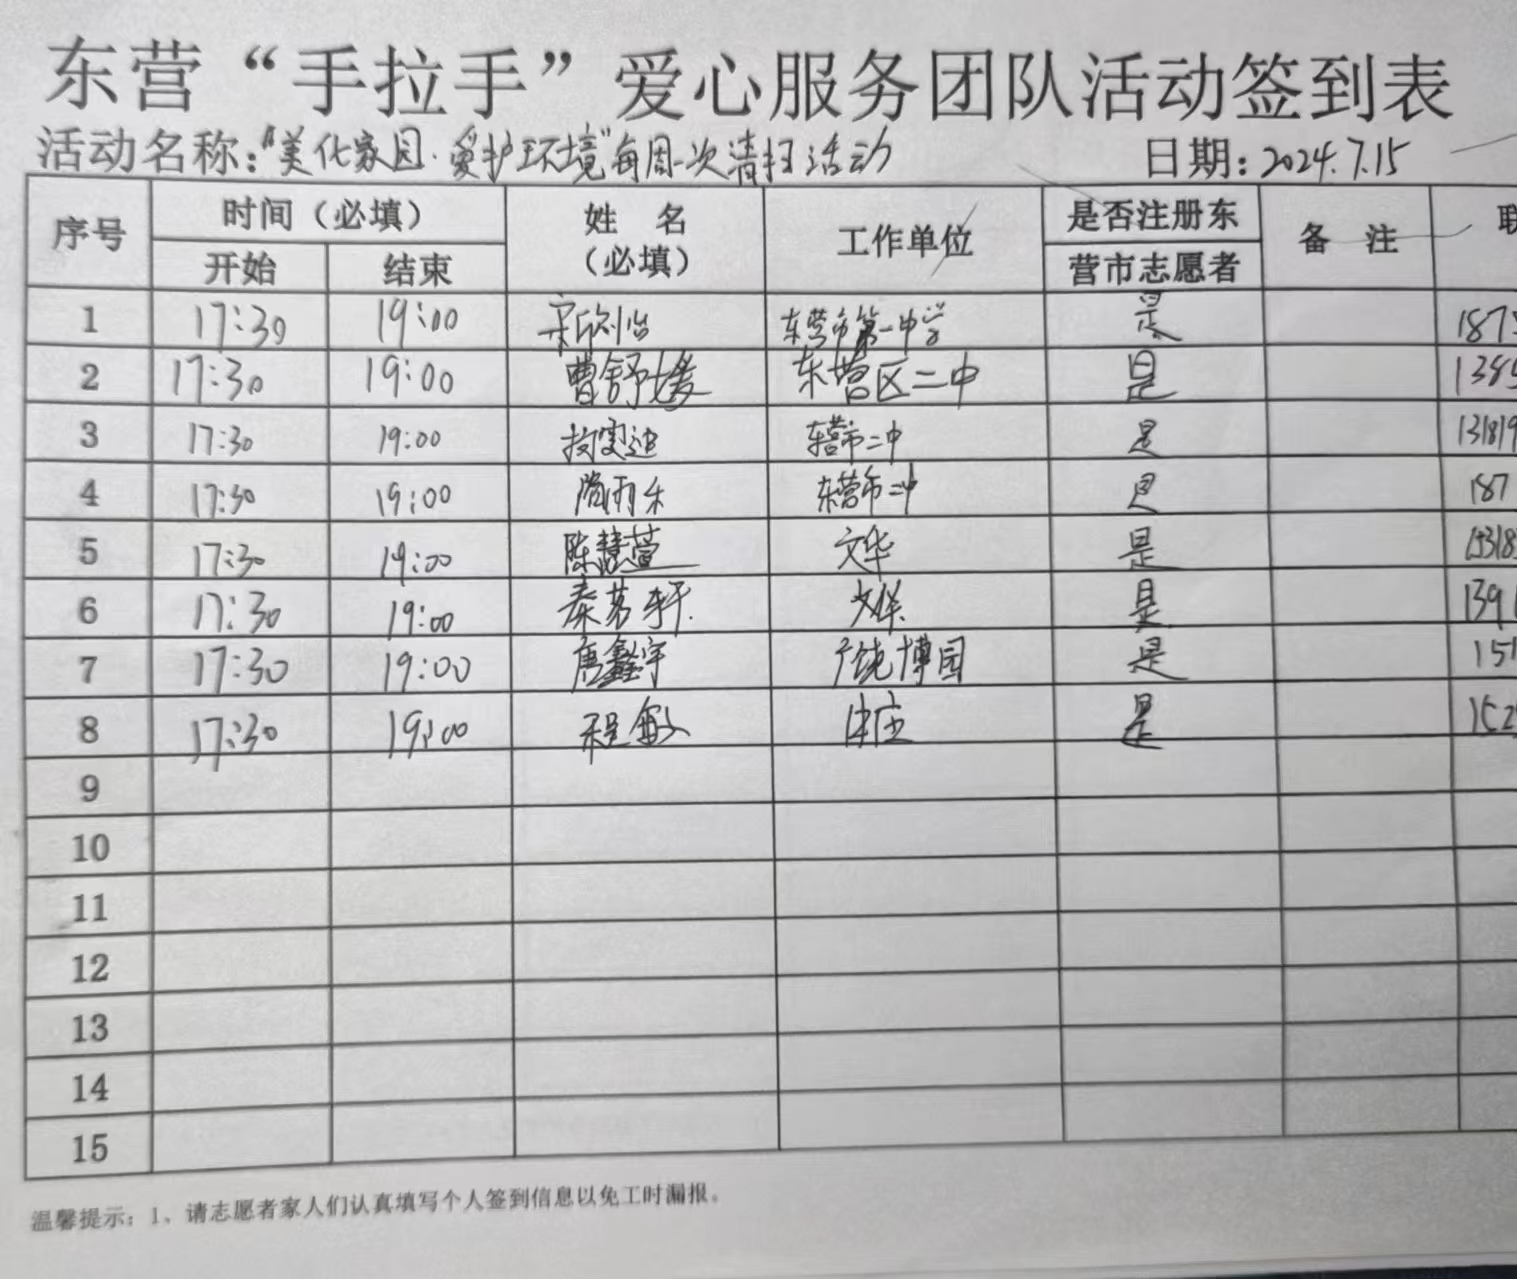 东营“手拉手”爱心服务团队活动签到表
活动名称:“美化家园·爱护环境”每周一次清扫活动 日期:2024.7.15
序号 时间（必填） 姓 名（必填） 工作单位 是否注册东营市志愿者 备 注 联
开始 结束
1 17:30 19:00 宋欣怡 东营市第一中学 是 187
2 17:30 19:00 曹舒媛 东营区二中 是 1385
3 17:30 19:00 东营市二中 是 131819
4 17:30 19:00 隋雨乐 东营市二中 是 187
5 17:30 19:00 陈慧萱 文华 是 15318
6 17:30 19:00 秦茗轩 文华 是 1391
7 17:30 19:00 唐鑫宇 广饶博园 是 151
8 17:30 19:00 程敏 是 152
9
10
11
12
13
14
15
温馨提示: 1、请志愿者家人们认真填写个人签到信息以免工时漏报。